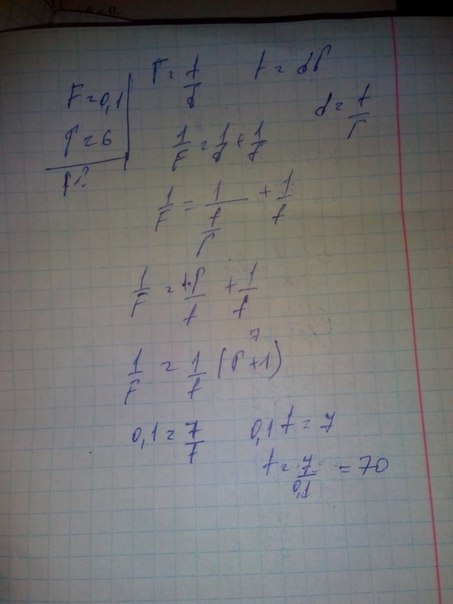 F = 0,1
Г = 6
Г = f/d    f = dГ
d = f/Г
1/F = 1/d + 1/f
1/F = 1/(f/Г) + 1/f
1/F = Г/f + 1/f
7
1/F = 1/f (Г + 1)
0,1 = 7/f    0,1 f = 7
f = 7/0,1 = 70